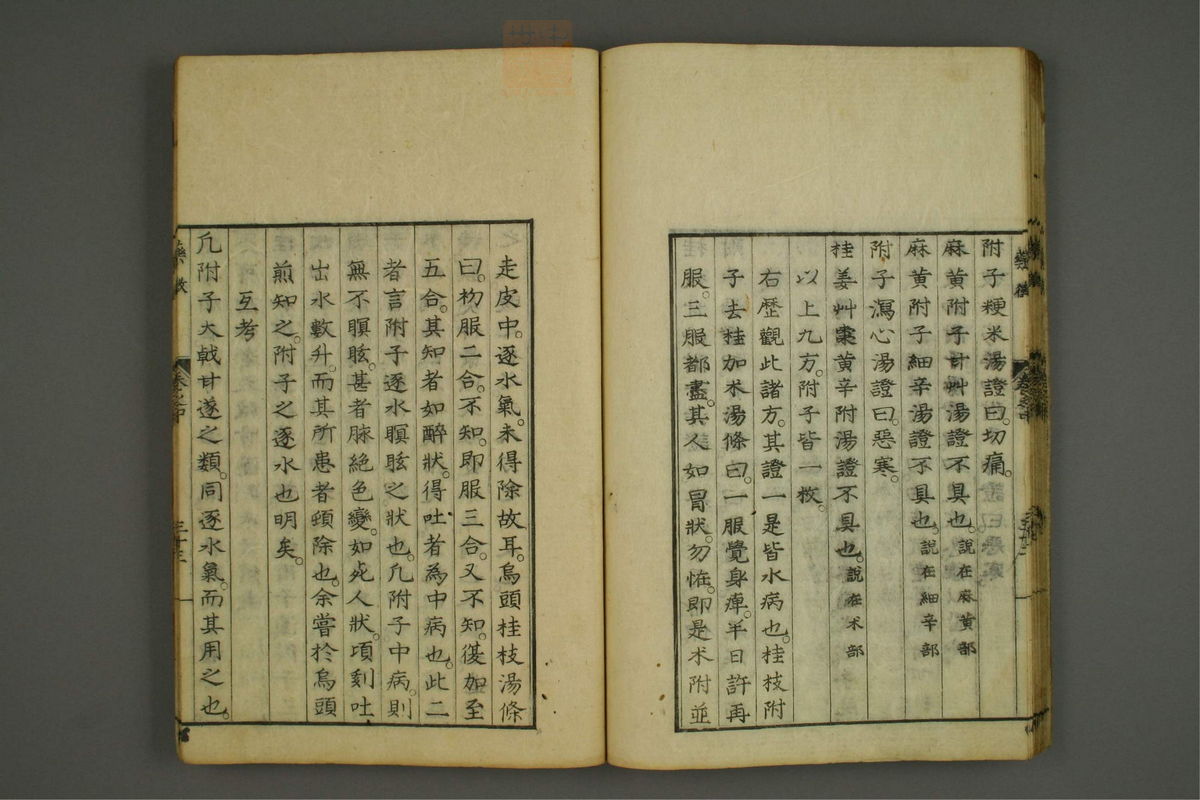 附子粳米湯證曰。切痛。
麻黄附子甘艸湯證不具也。說在麻黄部
麻黄附子細辛湯證不具也。說在細辛部
附子瀉心湯證曰。惡寒。
桂姜艸棗黄辛附湯證不具也。說在朮部
以上九方。附子皆一枚。
右歷觀此諸方。其證一是皆水病也。桂枝附
子去桂加朮湯條曰。一服覺身痺。半日許再
服。三服都盡。其人如冒狀。勿恠。即是朮附並
走皮中。逐水氣。未得除故耳。烏頭桂枝湯條
曰。初服二合。不知。即服三合。又不知。復加至
五合。其知者如醉狀。得吐者為中病也。此二
者言附子逐水瞑眩之狀也。凢附子中病。則
無不瞑眩。甚者脉絕色變。如死人狀。頃刻吐
出水數升。而其所患者頓除也。余嘗於烏頭
煎知之。附子之逐水也明矣。
互考
凢附子大戟甘遂之類。同逐水氣。而其用之也。
藥徵
卷之中